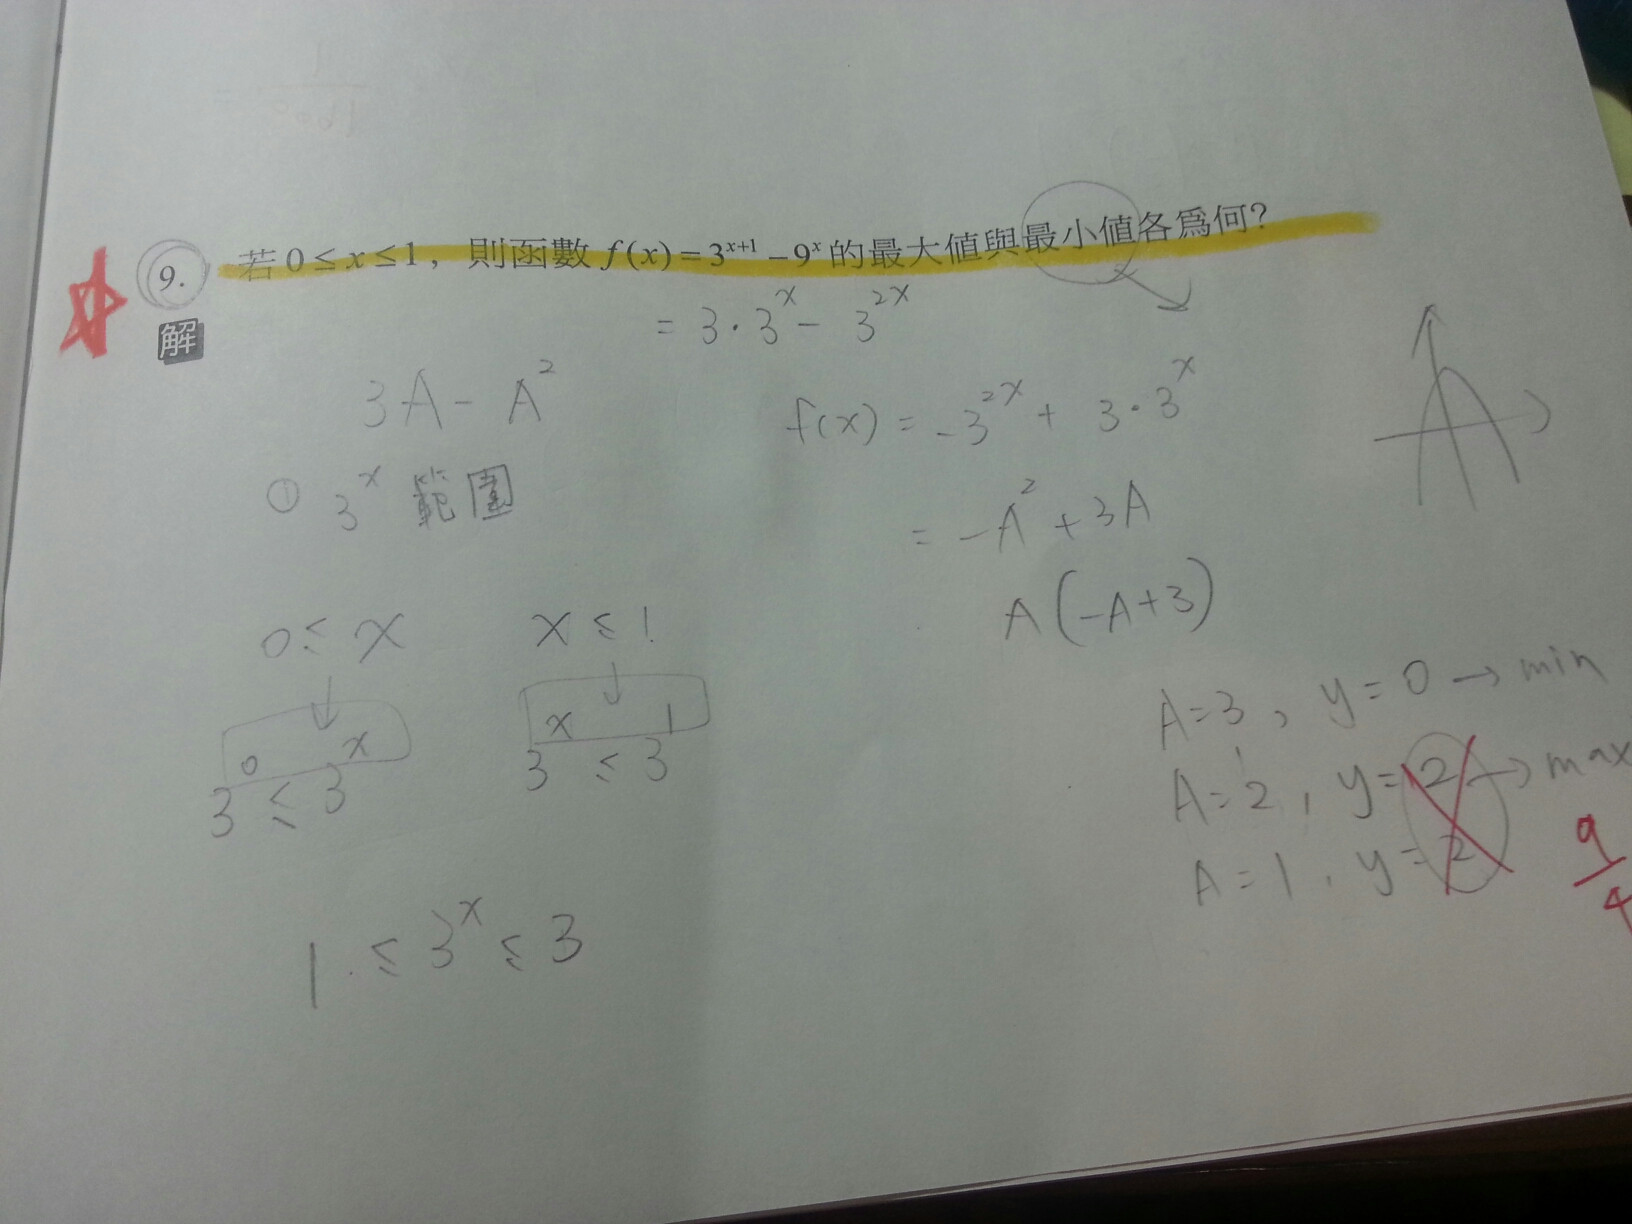 9. 若 0 ≤ x ≤ 1，則函數 f(x) = 3^{x+1} − 9^x 的最大值與最小值各爲何？
解
= 3·3^x − 3^{2x}
3A − A^2
f(x) = −3^{2x} + 3·3^x
① 3^x 範圍
= −A^2 + 3A
A(−A+3)
0 ≤ x
x ≤ 1
3^0 ≤ 3^x
3^x ≤ 3^1
A=3, y=0 → min
A=2, y=2 → max
A=1, y=2
9/4
1 ≤ 3^x ≤ 3